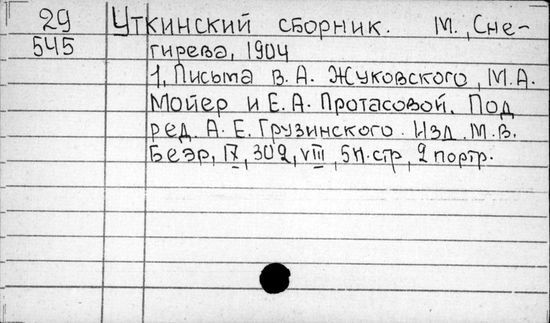 29 Уткинский сборник. М., Сне-
545 гирева, 1904
1, Письма В. А. Жуковского, М.А.
Мойер и Е. А. Протасовой. Под
ред. А. Е. Грузинского. Изд. М.В.
Беэр, IX, 302, VIII, 5 н. стр, 2 портр.